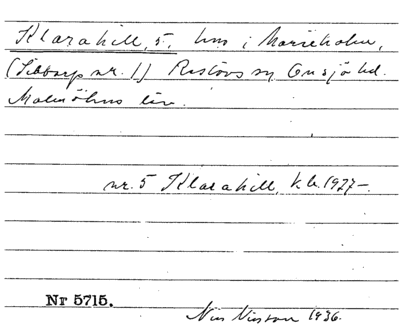 Klarahill, 5, hus i Marieholm,
(Sibbarp nr. 1) Reslövs sn Onsjö hd.
Malmöhus län.
nr. 5 Klarahill, kb. 1927-.
Nr 5715.
Nils Nilsson 1936.